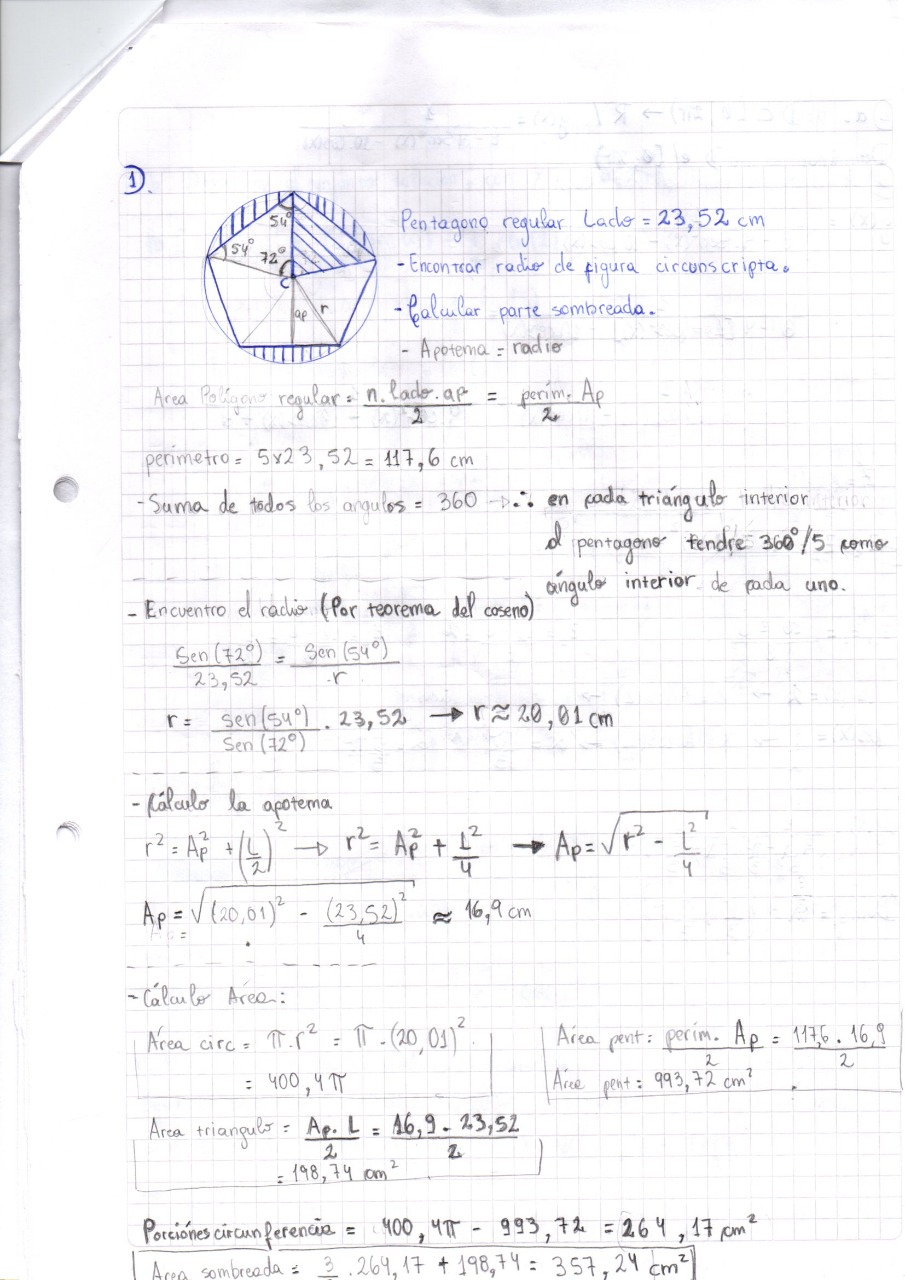 1.
54°
54°
72°
C
ap
r
Pentagono regular Lado = 23,52 cm
- Encontrar radio de figura circunscripta.
- Calcular parte sombreada.
- Apotema = radio
Area Polígono regular = n.lado.ap/2 = perím. Ap/2
perímetro = 5x23,52 = 117,6 cm
- Suma de todos los angulos = 360 → ∴ en cada triángulo interior
al pentagono tendre 360°/5 como
ángulo interior de cada uno.
- Encuentro el radio (Por teorema del coseno)
Sen(72°)/23,52 = Sen(54°)/r
r = sen(54°)/Sen(72°) . 23,52 → r ≈ 20,01 cm
- Cálculo la apotema
r² = Ap² + (L/2)² → r² = Ap² + L²/4 → Ap = √(r² - L²/4)
Ap = √((20,01)² - (23,52)²/4) ≈ 16,9 cm
- Cálculo Área:
Área circ = π.r² = π.(20,01)²
= 400,4π
Área pent = perím. Ap/2 = 117,6 . 16,9/2
Área pent = 993,72 cm²
Area triangulo = Ap. L/2 = 16,9 . 23,52/2
= 198,74 cm²
Porciónes circunferencia = 400,4π - 993,72 = 264,17 cm²
Area sombreada = 3/ . 264,17 + 198,74 = 357,24 cm²